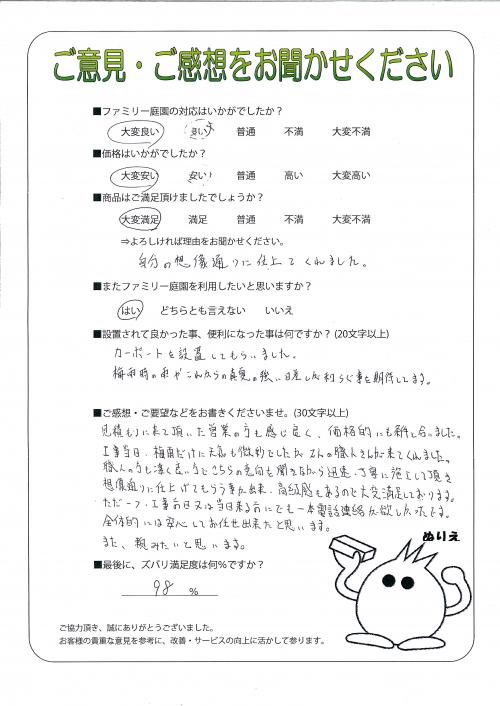 ご意見・ご感想をお聞かせください
■ファミリー庭園の対応はいかがでしたか？
大変良い 良い 普通 不満 大変不満
■価格はいかがでしたか？
大変安い 安い 普通 高い 大変高い
■商品はご満足頂けましたでしょうか？
大変満足 満足 普通 不満 大変不満
⇒よろしければ理由をお聞かせください。
自分の想像通りに仕上てくれました。
■またファミリー庭園を利用したいと思いますか？
はい どちらとも言えない いいえ
■設置されて良かった事、便利になった事は何ですか？(20文字以上)
カーポートを設置してもらいました。
梅雨時の雨やこれからの真夏の強い日差しが和らぐ事を期待してます。
■ご感想・ご要望などをお書きくださいませ。(30文字以上)
見積もりに来て頂いた営業の方も感じ良く、価格的にも
工事当日、梅雨だけに天気も微妙でしたが、2人の職人さんが来てくれました。
職人の方も凄く良い方でこちらの意向も聞きながら迅速、丁寧に施工して頂き
想像通りに仕上げてもらう事が出来、高級感もあるので大変満足しております。
ただ一つ、工事前日又は当日来る前にでも一本電話連絡が欲しかったです。
全体的には安心してお任せ出来たと思います。
また、頼みたいと思います。
ぬりえ
■最後に、ズバリ満足度は何％ですか？
98 %
ご協力頂き、誠にありがとうございました。
お客様の貴重な意見を参考に、改善・サービスの向上に活かして参ります。